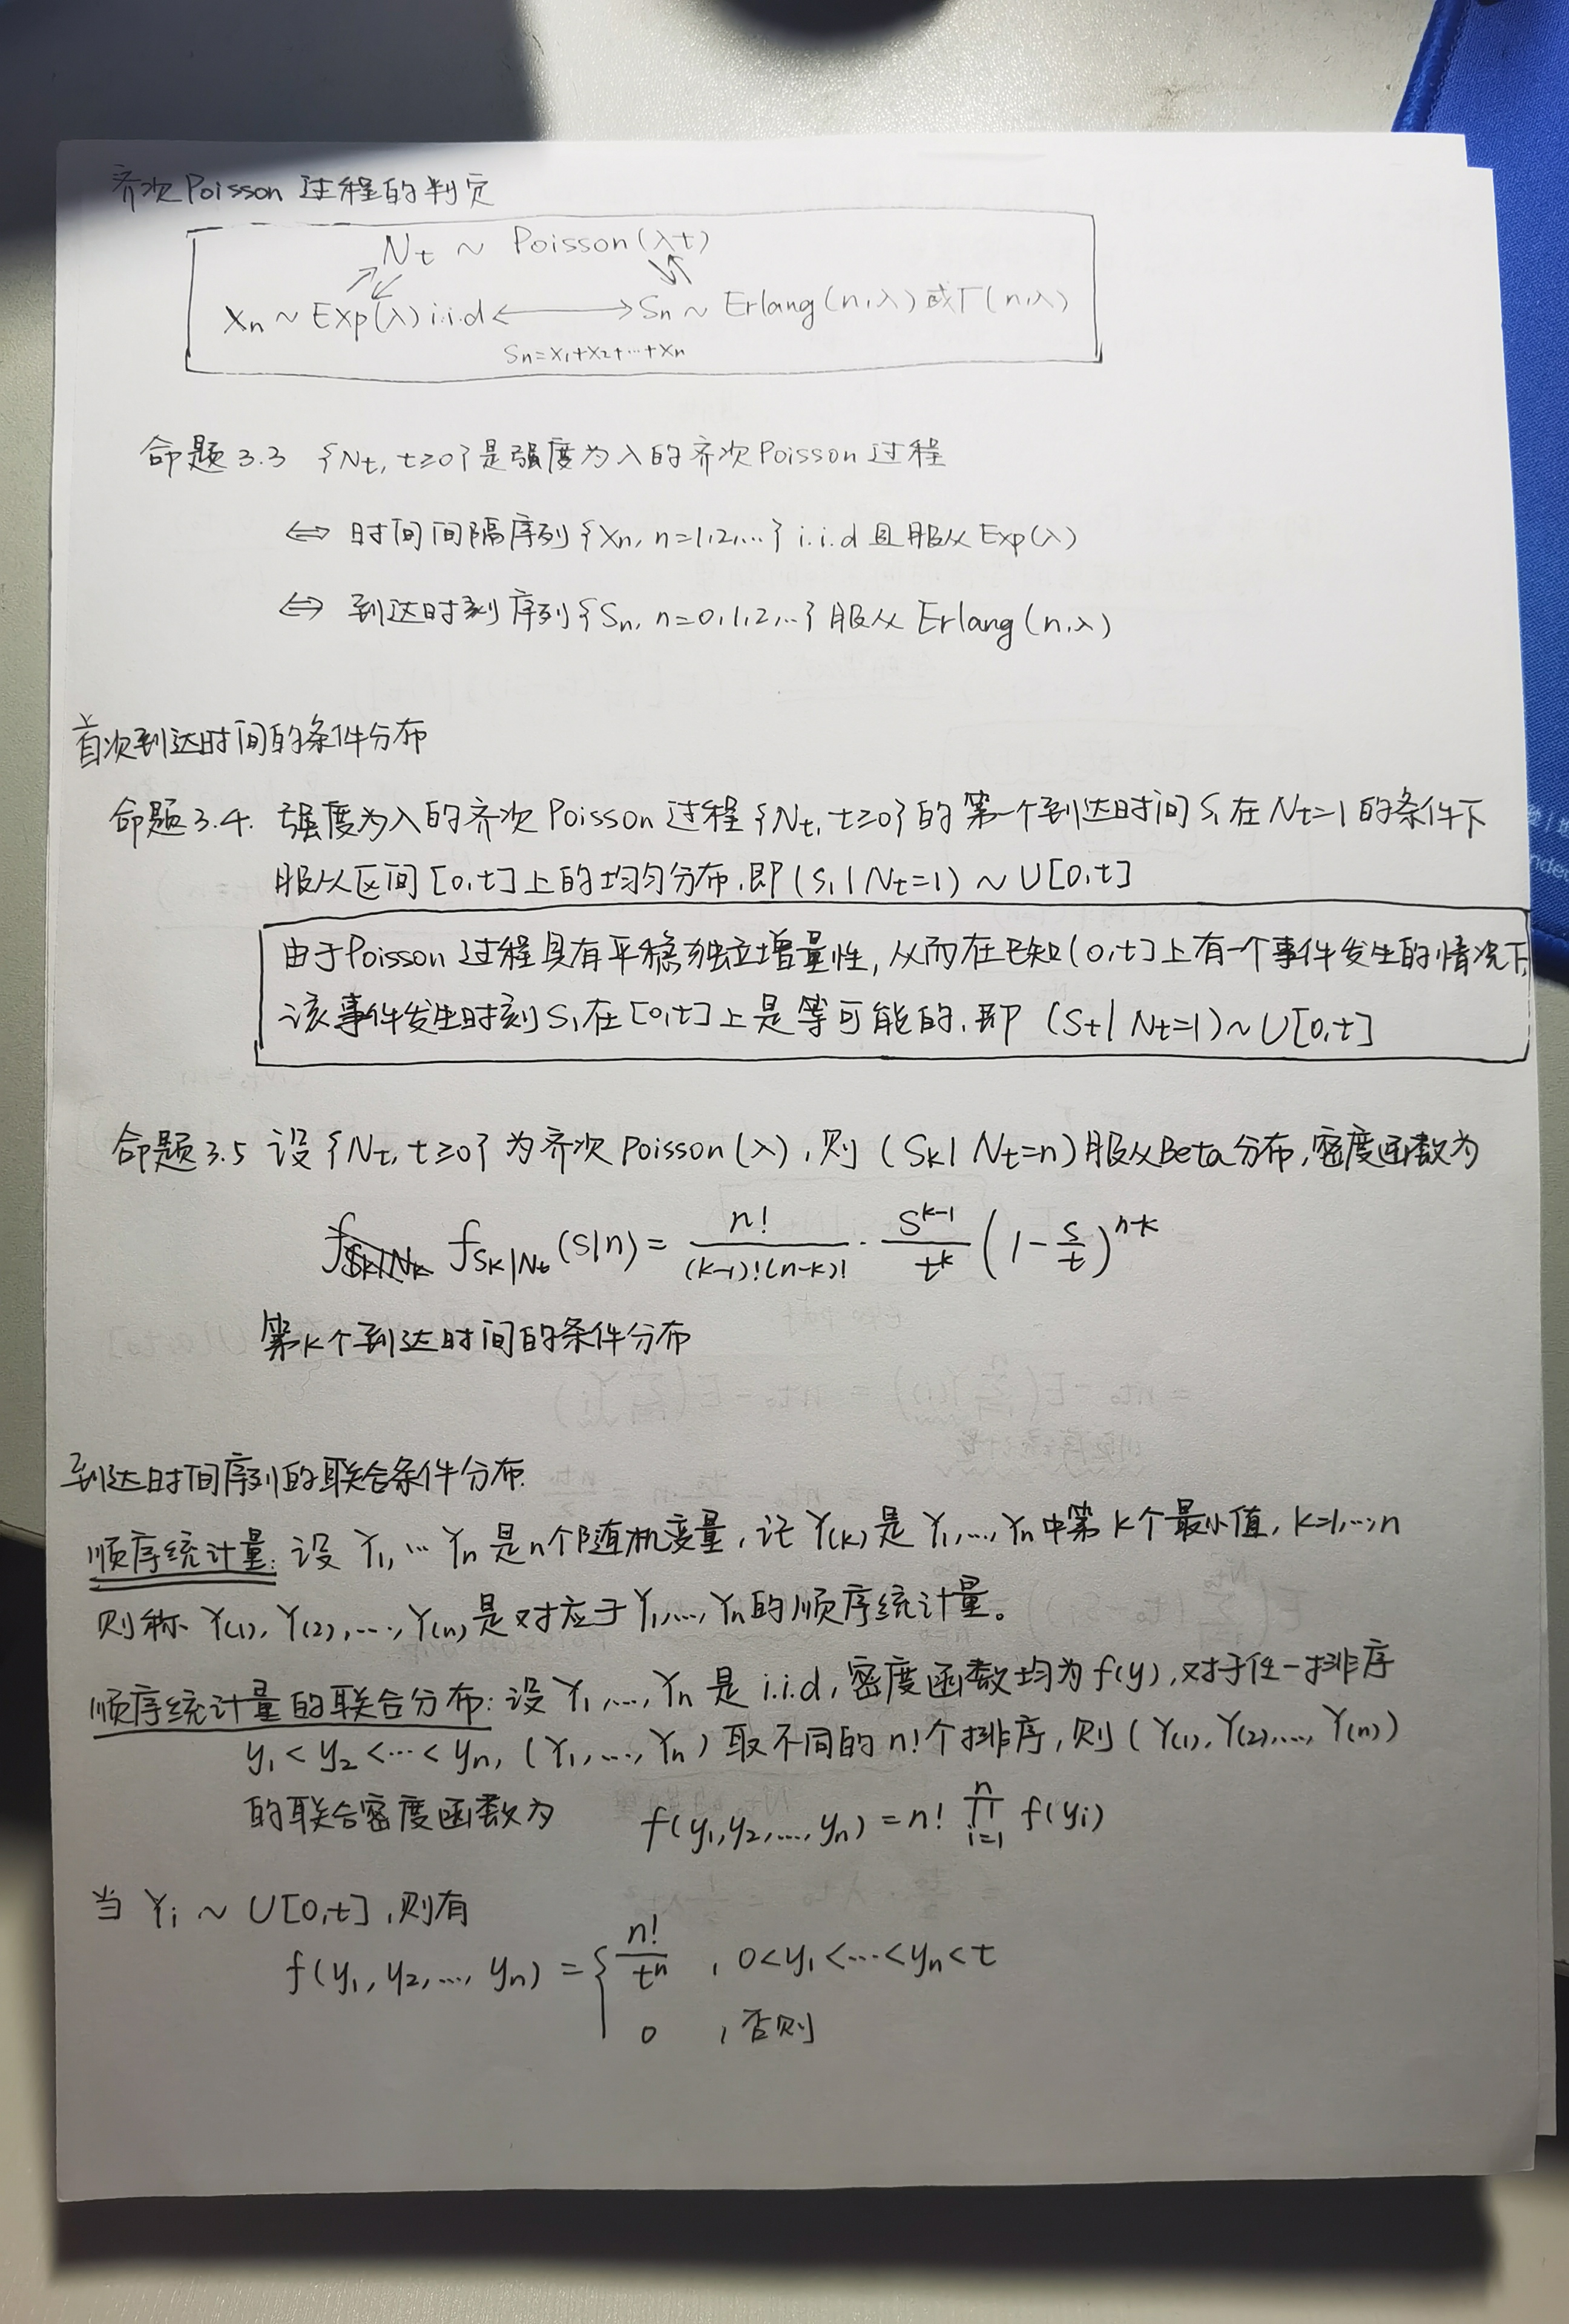 齐次Poisson 过程的判定
Nt ~ Poisson(λt)
Xn ~ Exp(λ) i.i.d ⟷ Sn ~ Erlang(n,λ)或Γ(n,λ)
Sn=X1+X2+…+Xn
命题3.3 {Nt, t≥0}是强度为λ的齐次Poisson过程
⇔ 时间间隔序列{Xn, n=1,2,…} i.i.d 且服从Exp(λ)
⇔ 到达时刻序列{Sn, n=0,1,2,…}服从Erlang(n,λ)
首次到达时间的条件分布
命题3.4. 强度为λ的齐次Poisson过程{Nt, t≥0}的第一个到达时间S1在Nt=1的条件下
服从区间[0,t]上的均匀分布,即(S1|Nt=1) ~ U[0,t]
由于Poisson过程具有平稳独立增量性,从而在已知(0,t]上有一个事件发生的情况下,
该事件发生时刻S1在[0,t]上是等可能的,即 (St|Nt=1)~U[0,t]
命题3.5 设{Nt, t≥0}为齐次Poisson(λ),则(Sk|Nt=n)服从Beta分布,密度函数为
fSk|Nt(s|n) = n!/((k-1)!(n-k)!) · s^(k-1)/t^k (1-s/t)^(n-k)
第k个到达时间的条件分布
到达时间序列的联合条件分布.
顺序统计量: 设Y1,…Yn是n个随机变量,记Y(k)是Y1,…,Yn中第k个最小值,k=1,…,n
则称Y(1),Y(2),…,Y(n)是对应于Y1,…,Yn的顺序统计量。
顺序统计量的联合分布: 设Y1,…,Yn是i.i.d,密度函数均为f(y),对于任一排序
y1<y2<…<yn, (Y1,…,Yn)取不同的n!个排序,则(Y(1),Y(2),…,Y(n))
的联合密度函数为 f(y1,y2,…,yn)=n! ∏_{i=1}^{n} f(yi)
当Yi ~ U[0,t],则有
f(y1,y2,…,yn) = { n!/t^n , 0<y1<…<yn<t
0 ,否则